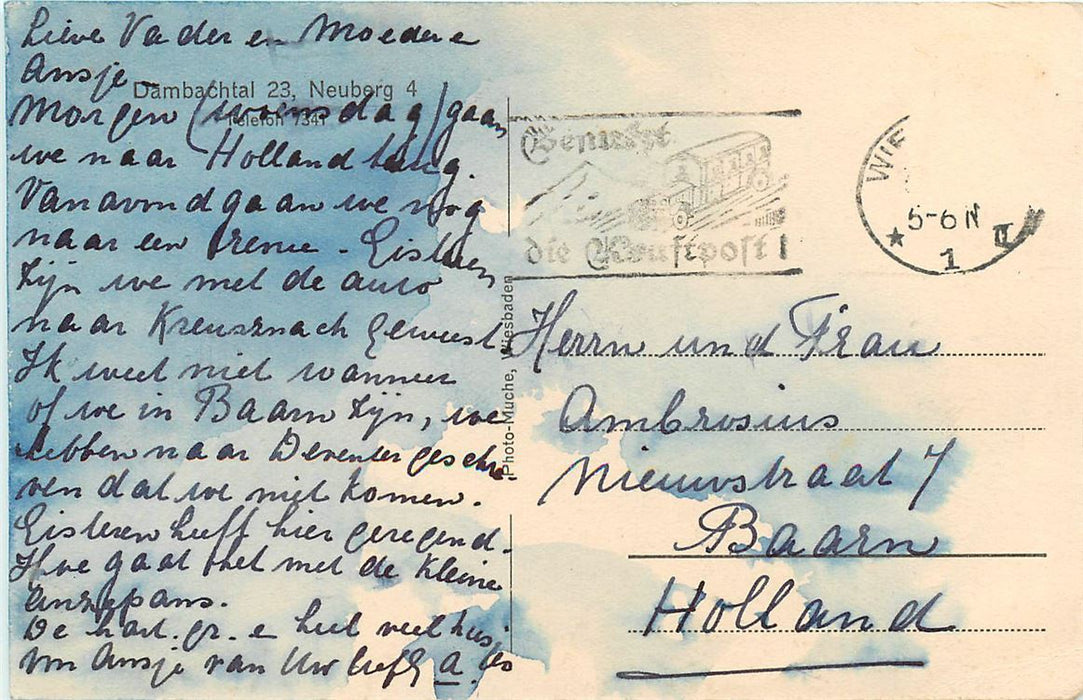 Lieve Vader en Moeder e
Ansje
Dambachtal 23, Neuberg 4
Telefon 7341
Morgen (woensdag) gaan
we naar Holland terug.
Vanavond gaan we nog
naar een revue. Gisteren
zijn we met de auto
naar Kreusznach geweest
Ik weet niet wanneer
of we in Baarn zijn, we
hebben naar Deventer geschre
ven dat we niet komen.
Gisteren heeft hier geregend.
Hoe gaat het met de kleine
De hart. gr. e heel veel kusjes
van Ansje van Uw liefh.
Photo-Muche, Wiesbaden
Benutzt
die Kraftpost!
WIE
5-6 N
* 1 II
Herrn und Frau
Ambrosius
Nieuwstraat 7
Baarn
Holland